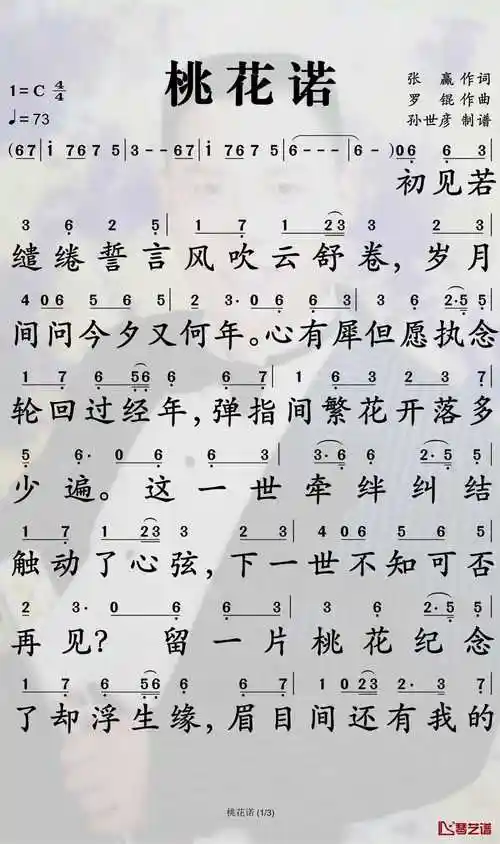 桃花诺
1=C 4/4
♩=73
张 赢 作词
罗 锟 作曲
孙世彦 制谱
(67 | i 767 5 | 3 - - 67 | i 767 5 | 6 - - - | 6 -) 06 6 3 |
初见若
3 6 2 5 | 1 7 1 23 | 3 · 2 3 |
缱绻誓言风吹云舒卷,岁月
4 06 5 6 5 | 2 3 · 0 6 | 6 3 3 6 | 2·5 5 |
间问今夕又何年。心有犀但愿执念
1 7 6 56 | 6 · 6 7 | 1 6 3 2 3 7 |
轮回过经年,弹指间繁花开落多
5 6 · 0 6 | 6 3 3·6 | 2·5 5 |
少遍。这一世牵绊纠结
1 7 1 23 | 3 · 2 3 | 4 06 5 6 5 |
触动了心弦,下一世不知可否
2 3 · 0 6 | 6 3 3 6 | 2·5 5 |
再见?留一片桃花纪念
1 7 6 56 | 6 · 6 7 | 1 023 2· 3 7 |
了却浮生缘,眉目间还有我的
桃花诺 (1/3)
琴艺谱